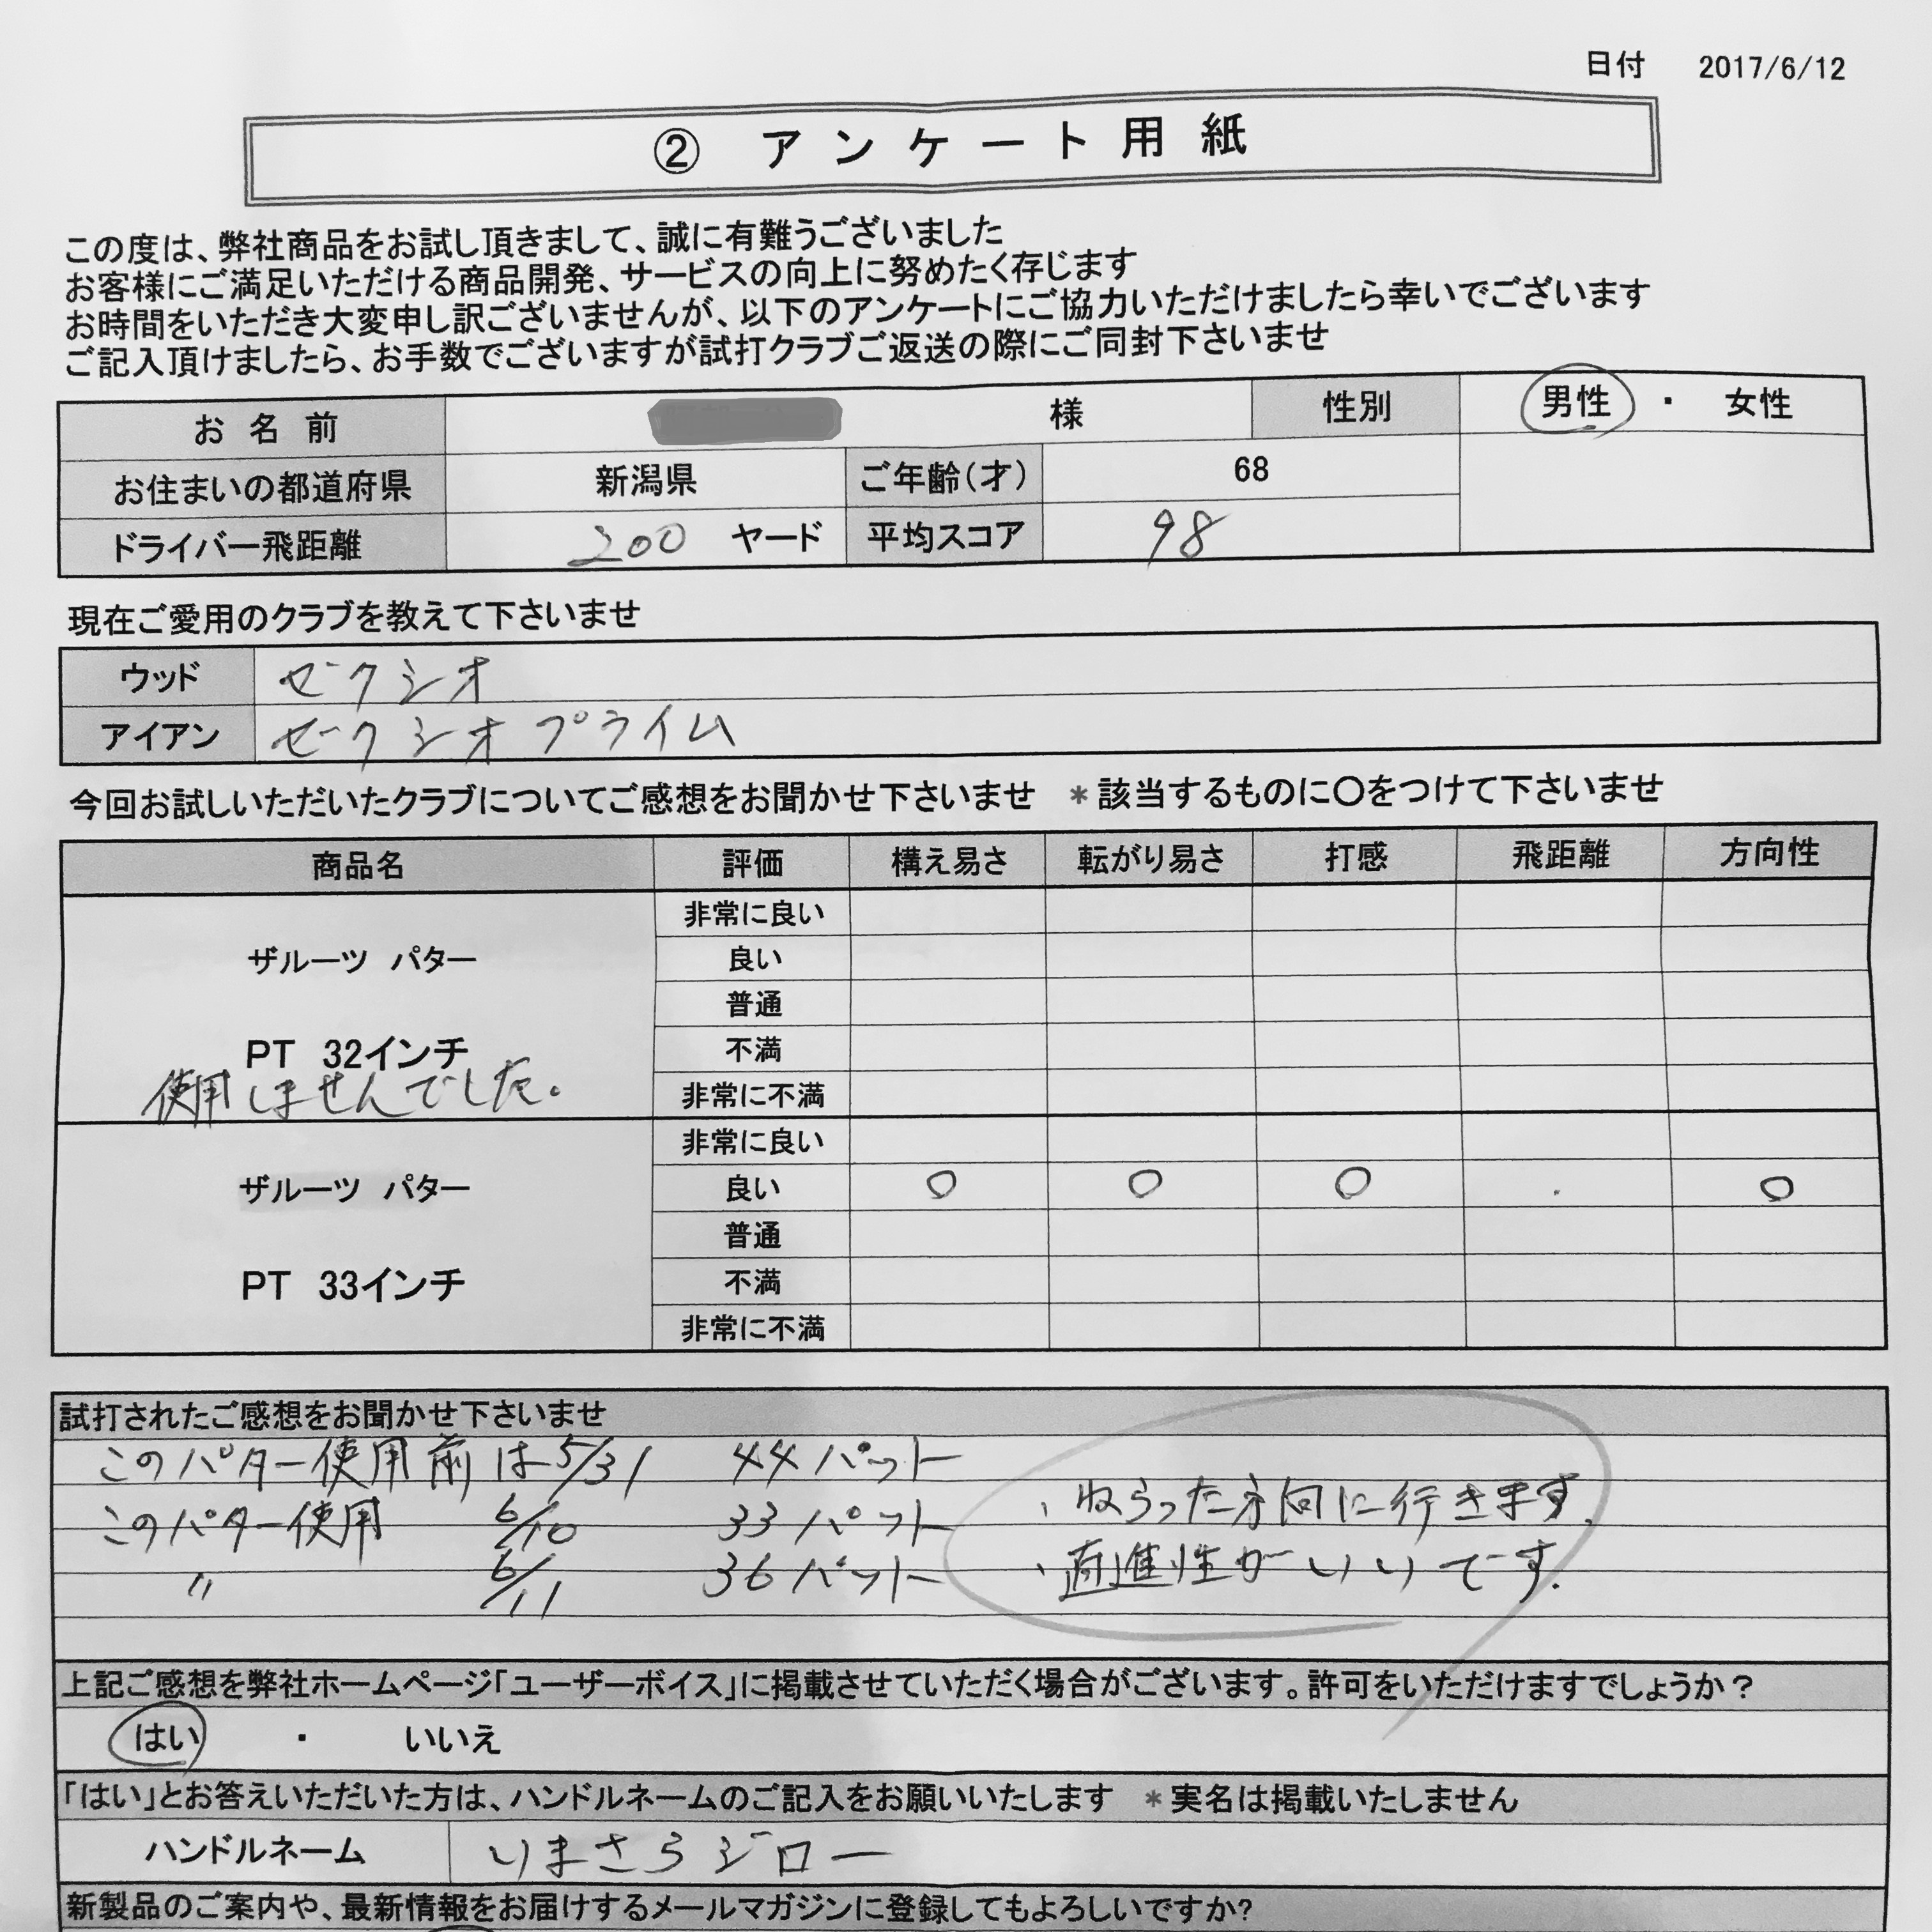 日付 2017/6/12
② アンケート用紙
この度は、弊社商品をお試し頂きまして、誠に有難うございました
お客様にご満足いただける商品開発、サービスの向上に努めたく存じます
お時間をいただき大変申し訳ございませんが、以下のアンケートにご協力いただけましたら幸いでございます
ご記入頂けましたら、お手数でございますが試打クラブご返送の際にご同封下さいませ
お名前 様 性別 男性 ・ 女性
お住まいの都道府県 新潟県 ご年齢(才) 68
ドライバー飛距離 200 ヤード 平均スコア 98
現在ご愛用のクラブを教えて下さいませ
ウッド ゼクシオ
アイアン ゼクシオプライム
今回お試しいただいたクラブについてご感想をお聞かせ下さいませ *該当するものに〇をつけて下さいませ
商品名 評価 構え易さ 転がり易さ 打感 飛距離 方向性
ザルーツ パター
PT 32インチ
使用しませんでした。
非常に良い
良い
普通
不満
非常に不満
ザルーツ パター
PT 33インチ
非常に良い
良い 〇 〇 〇 〇
普通
不満
非常に不満
試打されたご感想をお聞かせ下さいませ
このパター使用前は5/31 44パット
このパター使用 6/10 33パット 、ねらった方向に行きます。
〃 6/11 36パット 、直進性がいいです.
上記ご感想を弊社ホームページ「ユーザーボイス」に掲載させていただく場合がございます。許可をいただけますでしょうか?
はい ・ いいえ
「はい」とお答えいただいた方は、ハンドルネームのご記入をお願いいたします *実名は掲載いたしません
ハンドルネーム いまさらジロー
新製品のご案内や、最新情報をお届けするメールマガジンに登録してもよろしいですか?